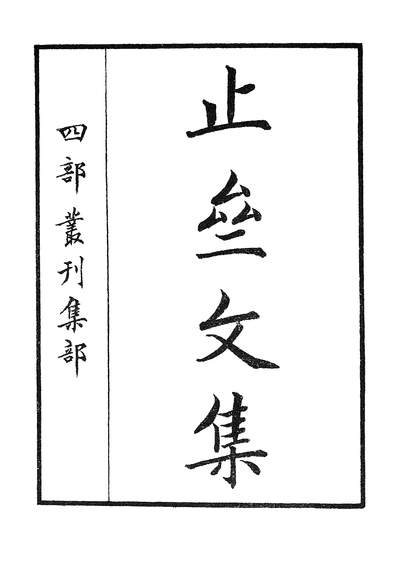 止亝文集
四部叢刊集部